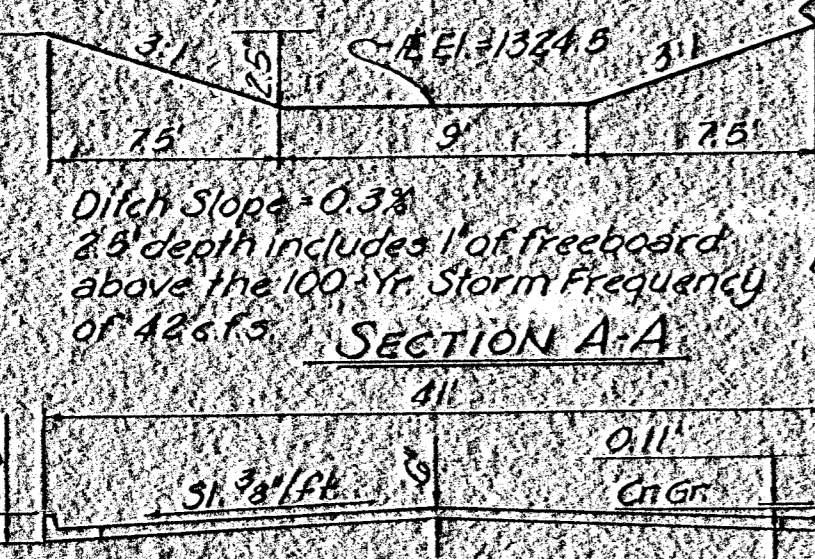 3:1
2.5'
℄ El.=1324.5
3:1
7.5'
9'
7.5'
Ditch Slope = 0.3%
2.5' depth includes 1' of freeboard
above the 100-Yr. Storm Frequency
of 42 c.f.s.
SECTION A-A
41'
Sl. 3/8"/ft.
0.11'
Crn Grn